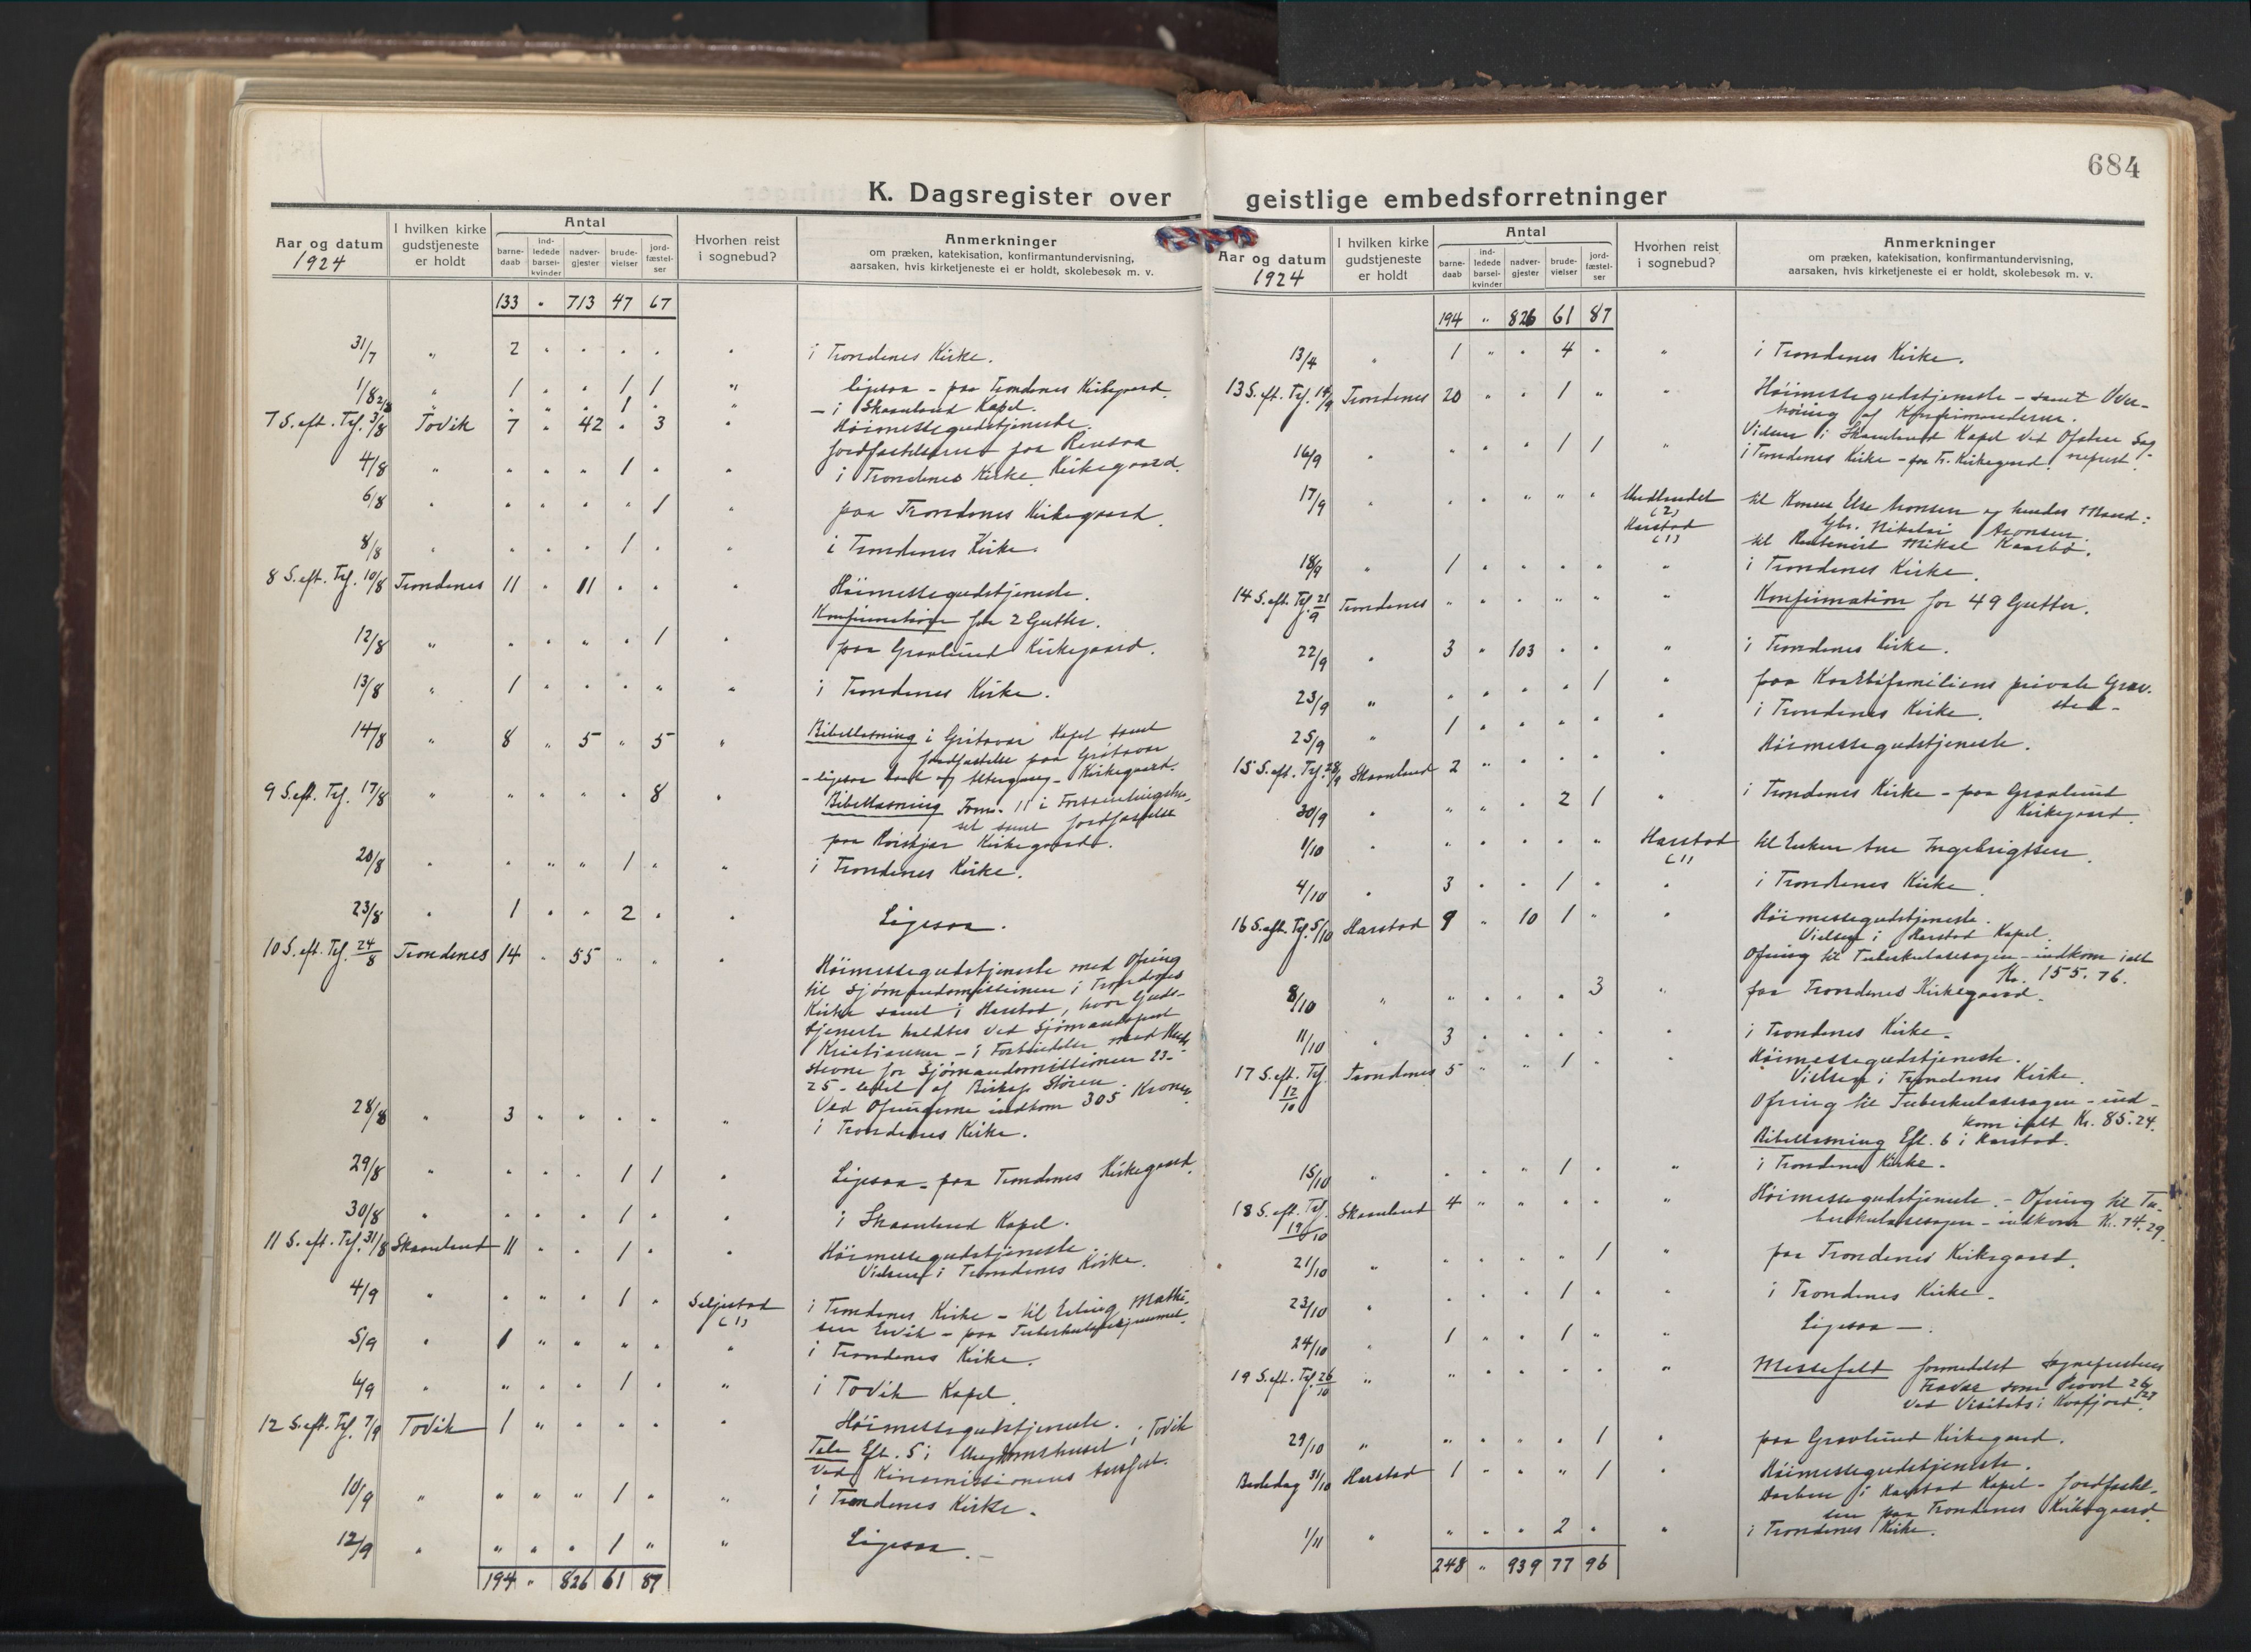 684
K. Dagsregister over geistlige embedsforretninger
Aar og datum 1924
I hvilken kirke gudstjeneste er holdt
Antal
barne-daab
ind-ledede barsel-kvinder
nadver-gjester
brude-vielser
jord-fæstel-ser
Hvorhen reist i sognebud?
Anmerkninger
om præken, katekisation, konfirmantundervisning,
aarsaken, hvis kirketjeneste ei er holdt, skolebesøk m. v.
133 " 713 47 67
31/7 " 2 " " " " " i Trondenes Kirke.
1/8 " 1 " " 1 1 " ligesaa - paa Trondenes Kirkegaard.
2/8 " " " " 1 " " - i Skaanland Kapel.
7 S. eft. Trf. 3/8 Tovik 7 " 42 " 3 " Höimessegudstjeneste.
Jordfæstelserne paa Rensaa Kirkegaard.
4/8 " " " " 1 " " i Trondenes Kirke.
6/8 " " " " " 1 " paa Trondenes Kirkegaard.
8/8 " " " " 1 " " i Trondenes Kirke.
8 S. eft. Trf. 10/8 Trondenes 11 " 11 " " " Höimessegudstjeneste.
Konfirmation for 2 Gutter.
12/8 " " " " " 1 " paa Gravlund Kirkegaard.
13/8 " 1 " " " " " i Trondenes Kirke.
14/8 " 8 " 5 " 5 " Bibellæsning i Grötavær Kapel samt
Jordfæstelse paa Grötavær
- ligesaa Daab og Altergang - Kirkegaard.
9 S. eft. Trf. 17/8 " " " " " 8 " Bibellæsning Form. 11 i Forsamlingshu-
set samt Jordfæstelse
paa Kirkegaard.
20/8 " " " " 1 " " i Trondenes Kirke.
23/8 " 1 " " 2 " " Ligesaa.
10 S. eft. Trf. 24/8 Trondenes 14 " 55 " " Höimessegudstjeneste med Ofring
til Sjömandsmissionen i Trondenes
Kirke samt i Harstad, hvor Guds-
tjeneste holdtes ved Sjömandsprest
Kristiansen - i Forbindelse med
stevne for Sjömandsmissionen 23-
25 - ledet af Biskop Stören.
Ved Ofringerne indkom 305 Kroner.
28/8 " 3 " " " " " i Trondenes Kirke.
29/8 " " " " 1 1 " Ligesaa - paa Trondenes Kirkegaard.
30/8 " " " " 1 " " i Skaanland Kapel.
11 S. eft. Trf. 31/8 Skaanland 11 " " 1 " " Höimessegudstjeneste
Vielsen i Trondenes Kirke.
4/9 " " " " 1 " Seljestad (1) i Trondenes Kirke - til Erling Mathi-
sen Ervik - paa Tuberkulosehjemmet.
5/9 " 1 " " " " " i Trondenes Kirke.
6/9 " " " " 1 " " i Tovik Kapel.
12 S. eft. Trf. 7/9 Tovik 1 " " " " " Höimessegudstjeneste.
Tale Eft. 5 i Ungdomshuset i Tovik
ved Kinamissionens Aarsfest.
10/9 " " " " 1 " " i Trondenes Kirke.
12/9 " " " " 1 " " Ligesaa. -
194 " 826 61 87
Aar og datum 1924
I hvilken kirke gudstjeneste er holdt
Antal
barne-daab
ind-ledede barsel-kvinder
nadver-gjester
brude-vielser
jord-fæstel-ser
Hvorhen reist i sognebud?
Anmerkninger
om præken, katekisation, konfirmantundervisning,
aarsaken, hvis kirketjeneste ei er holdt, skolebesøk m. v.
194 " 826 61 87
13/9 " 1 " " 4 " " i Trondenes Kirke.
13 S. eft. Trf. 14/9 Trondenes 20 " " 1 " " Höimessegudstjeneste - samt Over-
höring af Konfirmanderne.
Vielsen i Skaanland Kapel ved Ofoten Sog-
neprest.
16/9 " " " " 1 1 " i Trondenes Kirke - paa Tr. Kirkegaard.
17/9 " " " " " " (2) til Konen Else Aronsen og hendes Mand:
Gbr. Nikolai Aronsen.
Harstad (1) til Mikal Kaarbö.
18/9 " 1 " " " " " i Trondenes Kirke.
14 S. eft. Trf. 21/9 Trondenes " " " " " " Konfirmation for 49 Gutter.
22/9 " 3 " 103 " " " i Trondenes Kirke.
23/9 " " " " " 1 " paa Kaarböfamiliens private Grav-
sted.
25/9 " 1 " " " " " i Trondenes Kirke.
15 S. eft. Trf. 28/9 Skaanland 2 " " " " " Höimessegudstjeneste.
30/9 " " " " 2 1 " i Trondenes Kirke - paa Gravlund
Kirkegaard.
1/10 " " " " " " Harstad (1) til Enken Ane Ingebrigtsen.
4/10 " 3 " " 1 " " i Trondenes Kirke
16 S. eft. Trf. 5/10 Harstad 9 " 10 1 " " Höimessegudstjeneste.
Vielsen i Harstad Kapel.
Ofring til Tuberkulosesagen - indkom ialt
Kr. 155.76.
8/10 " " " " " 3 " paa Trondenes Kirkegaard.
11/10 " 3 " " " " " i Trondenes Kirke.
17 S. eft. Trf. 12/10 Trondenes 5 " " 1 " " Höimessegudstjeneste.
Vielsen i Trondenes Kirke.
Ofring til Tuberkulosesagen - ind-
kom ialt Kr. 85.24.
Bibellæsning Eft. 6 i Harstad.
15/10 " " " " 1 " " i Trondenes Kirke.
18 S. eft. Trf. 19/10 Skaanland 4 " " " " " Höimessegudstjeneste. - Ofring til Tu-
berkulosesagen - indkom Kr. 14.29.
21/10 " " " " " 1 " paa Trondenes Kirkegaard.
23/10 " " " " 1 " " i Trondenes Kirke.
24/10 " 1 " " 1 " " Ligesaa -.
19 S. eft. Trf. 26/10 " " " " " " " Messefald formedelst Sogneprestens
Fravær som Provst 26/27
ved Visitats i Kvæfjord.
29/10 " " " " " 1 " paa Gravlund Kirkegaard.
Bededag 31/10 Harstad 1 " " " 1 " Höimessegudstjeneste.
Daaben i Harstad Kapel - Jordfæstel-
sen paa Trondenes Kirkegaard.
1/11 " " " " 2 " " i Trondenes Kirke.
248 " 939 77 96